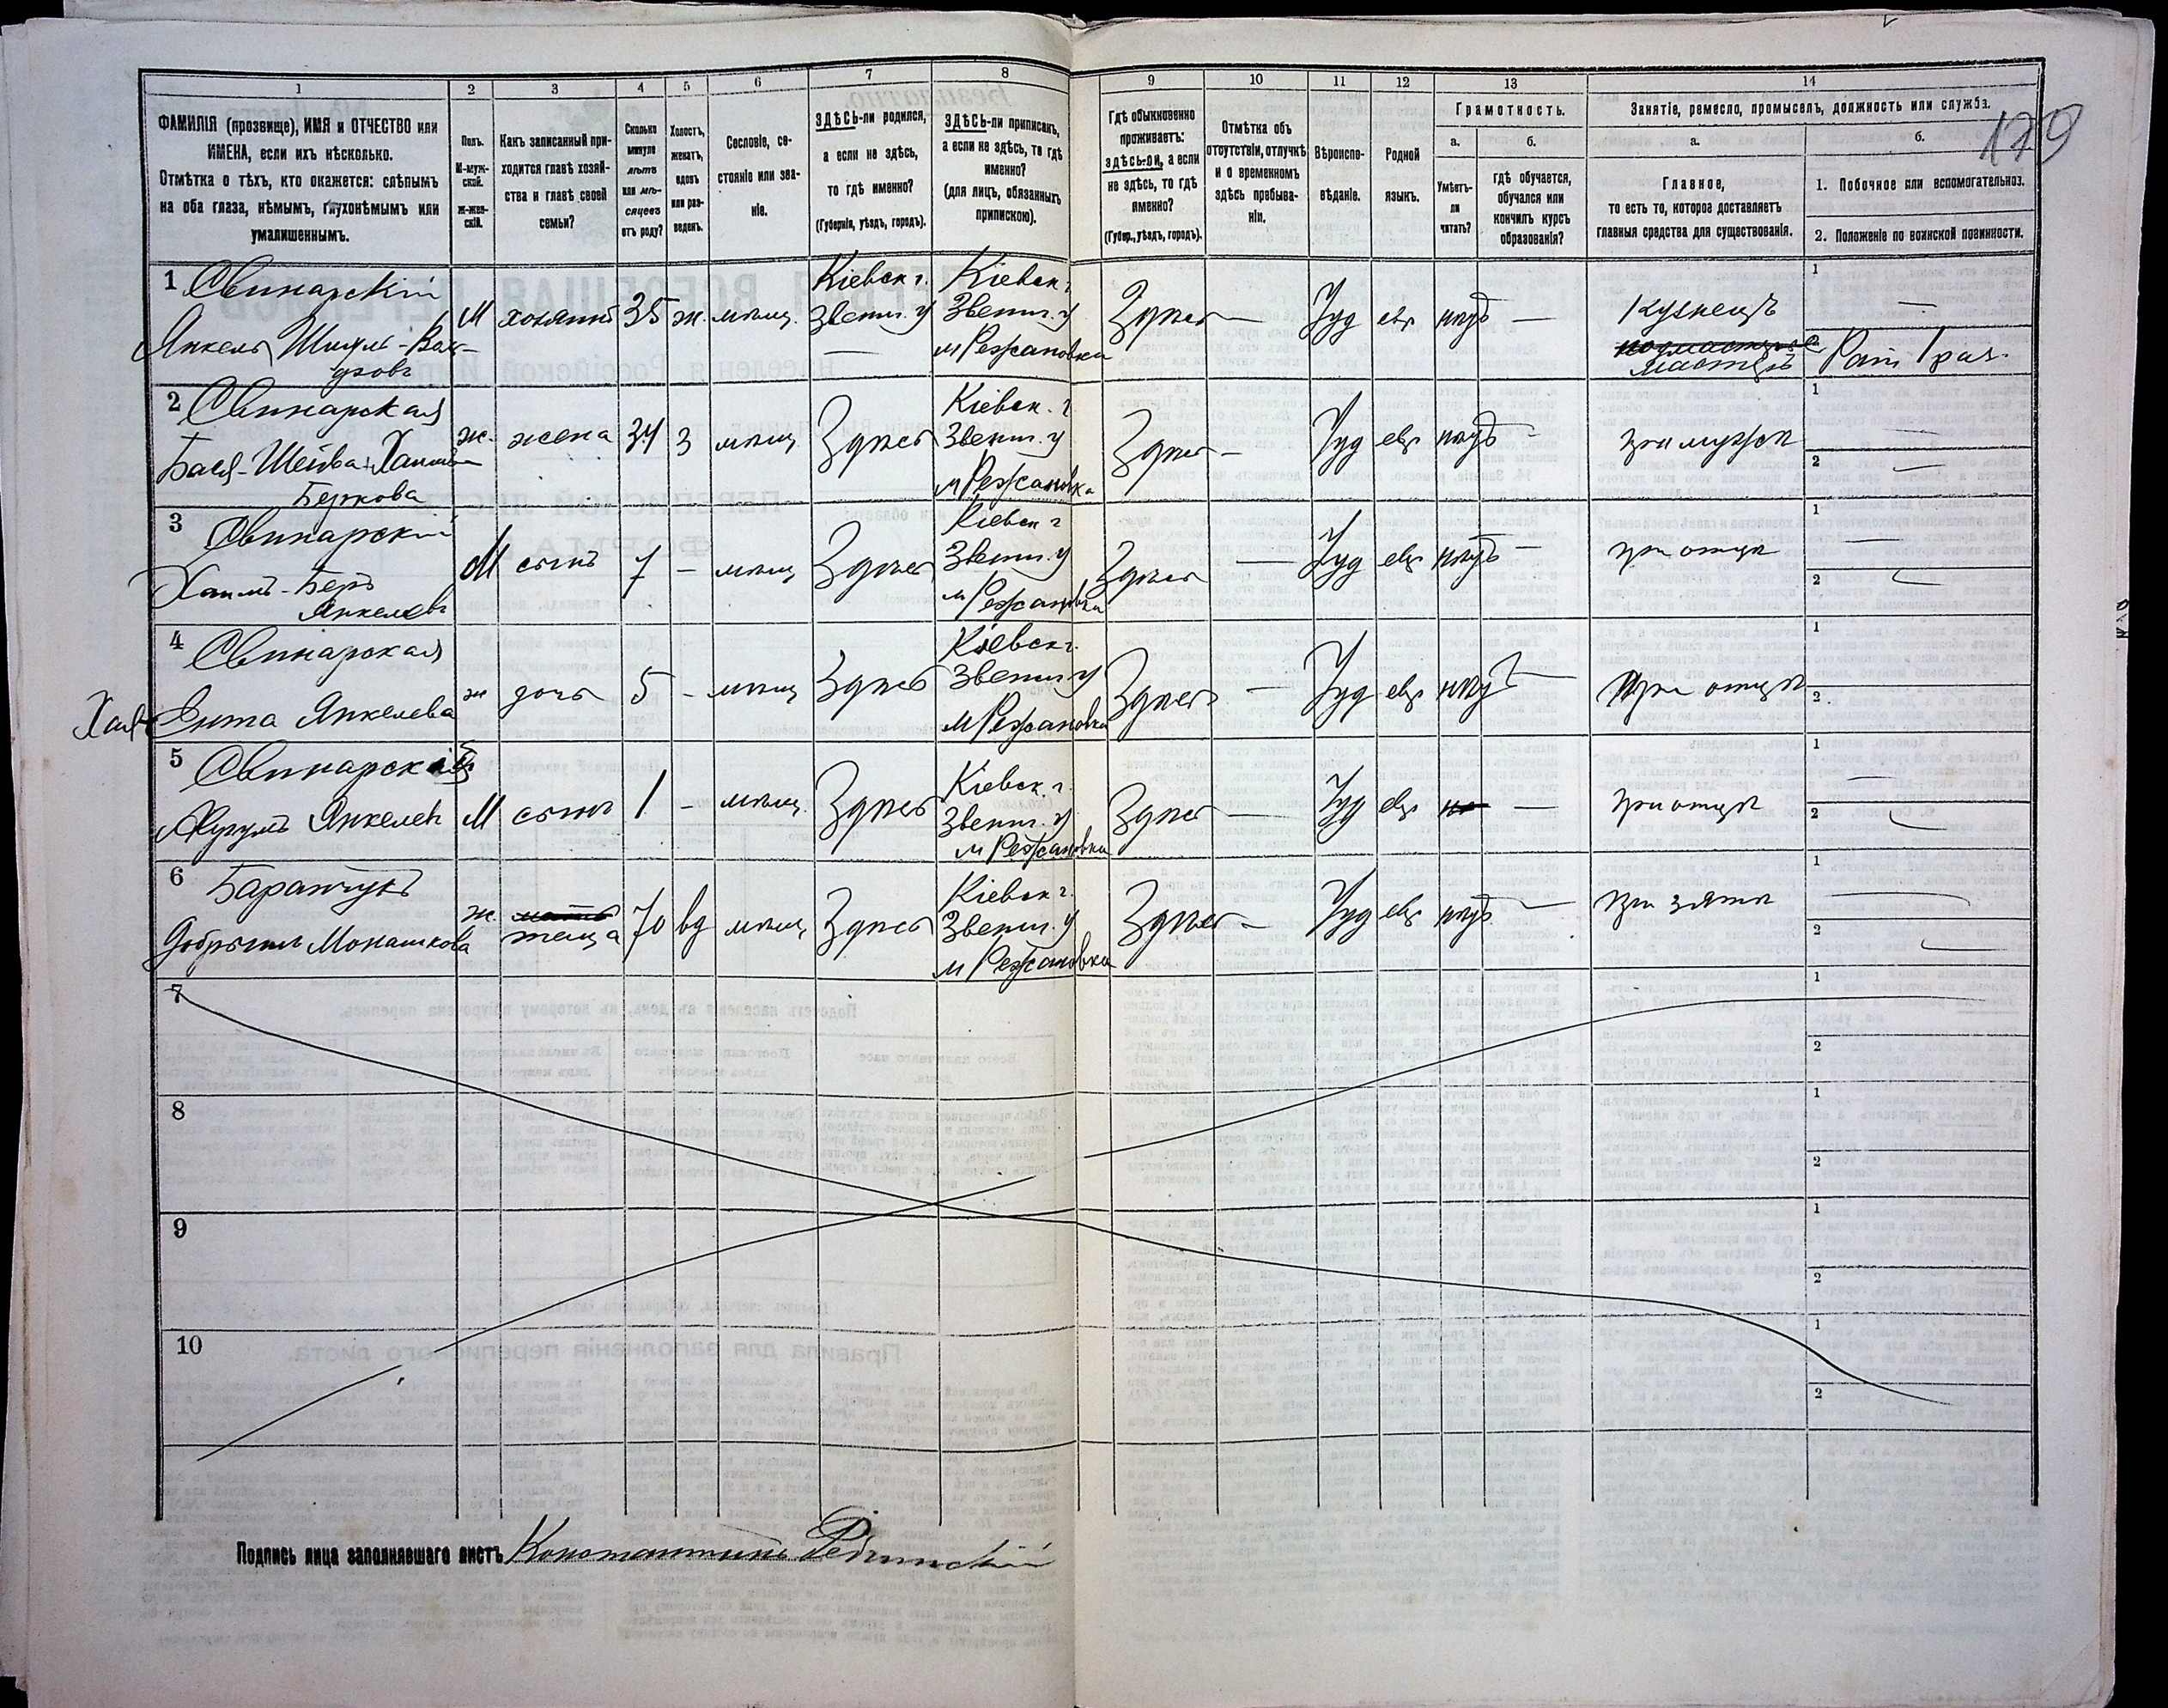 1 2 3 4 5 6 7 8 9 10 11 12 13 14
179
ФАМИЛІЯ (прозвище), ИМЯ и ОТЧЕСТВО или
ИМЕНА, если ихъ нѣсколько.
Отмѣтка о тѣхъ, кто окажется: слѣпымъ
на оба глаза, нѣмымъ, глухонѣмымъ или
умалишеннымъ.
Полъ.
М-муж-
ской.
Ж-жен-
скій.
Какъ записанный при-
ходится главѣ хозяй-
ства и главѣ своей
семьи?
Сколько
минуло
лѣтъ
или мѣ-
сяцевъ
отъ роду?
Холостъ,
женатъ,
вдовъ
или раз-
веденъ.
Сословіе, со-
стояніе или зва-
ніе.
ЗДѢСЬ-ли родился,
а если не здѣсь,
то гдѣ именно?
(Губернія, уѣздъ, городъ).
ЗДѢСЬ-ли приписанъ,
а если не здѣсь, то гдѣ
именно?
(для лицъ, обязанныхъ
припискою).
Гдѣ обыкновенно
проживаетъ:
здѣсь-ли, а если
не здѣсь, то гдѣ
именно?
(Губер., уѣздъ, городъ).
Отмѣтка объ
отсутствіи, отлучкѣ
и о временномъ
здѣсь пребыва-
ніи.
Вѣроиспо-
вѣданіе.
Родной
языкъ.
Грамотность.
а.
Умѣетъ-
ли
читать?
б.
гдѣ обучается,
обучался или
кончилъ курсъ
образованія?
Занятіе, ремесло, промыселъ, должность или служба.
а.
Главное,
то есть то, которое доставляетъ
главныя средства для существованія.
б.
1. Побочное или вспомогательное.
2. Положеніе по воинской повинности.
1 Свинарскій
Янкель Шмуль-Вол-
фовъ
М хозяинъ 35 ж. мѣщ.
Кіевск г.
Звениг. у
Кіевск г
Звениг. у
м Режановка
Здѣсь — Іуд евр нѣтъ —
Кузнецъ
мастеръ
1 —
2 Рат 1 раз.
2 Свинарская
Бася-Шейва Хаимъ-
Беркова
ж. жена 34 З мѣщ. Здѣсь
Кіевск. г
Звениг. у
м Режановка
Здѣсь — Іуд евр нѣтъ - при мужѣ
1 —
2 —
3 Свинарскій
Хаимъ-Беръ
Янкелевъ
М сынъ 7 — мѣщ Здѣсь
Кіевск г
Звениг. у
м Режановка
Здѣсь — Іуд евр нѣтъ — при отцѣ
1 —
2 —
4 Свинарская
Хая-Ента Янкелева
ж дочь 5 - мѣщ Здѣсь
Кіевск г.
Звениг у
м Режановка
Здѣсь — Іуд евр нѣтъ — При отцѣ
1
2
5 Свинарскій
Янкелевъ
М сынъ 1 — мѣщ. Здѣсь
Кіевск. г.
Звениг. у
м Режановка
Здѣсь — Іуд евр не — при отцѣ
1 —
2 —
6 Баранчукъ
Добрыш Монашкова
ж. мать
теща
70 вд мѣщ Здѣсь
Кіевск г.
Звениг. у
м Режановка
Здѣсь — Іуд евр нѣтъ — при зятѣ
1 —
2 —
7
1
2
8
1
2
9
1
2
10
1
2
Подпись лица заполнявшаго листъ Константинъ